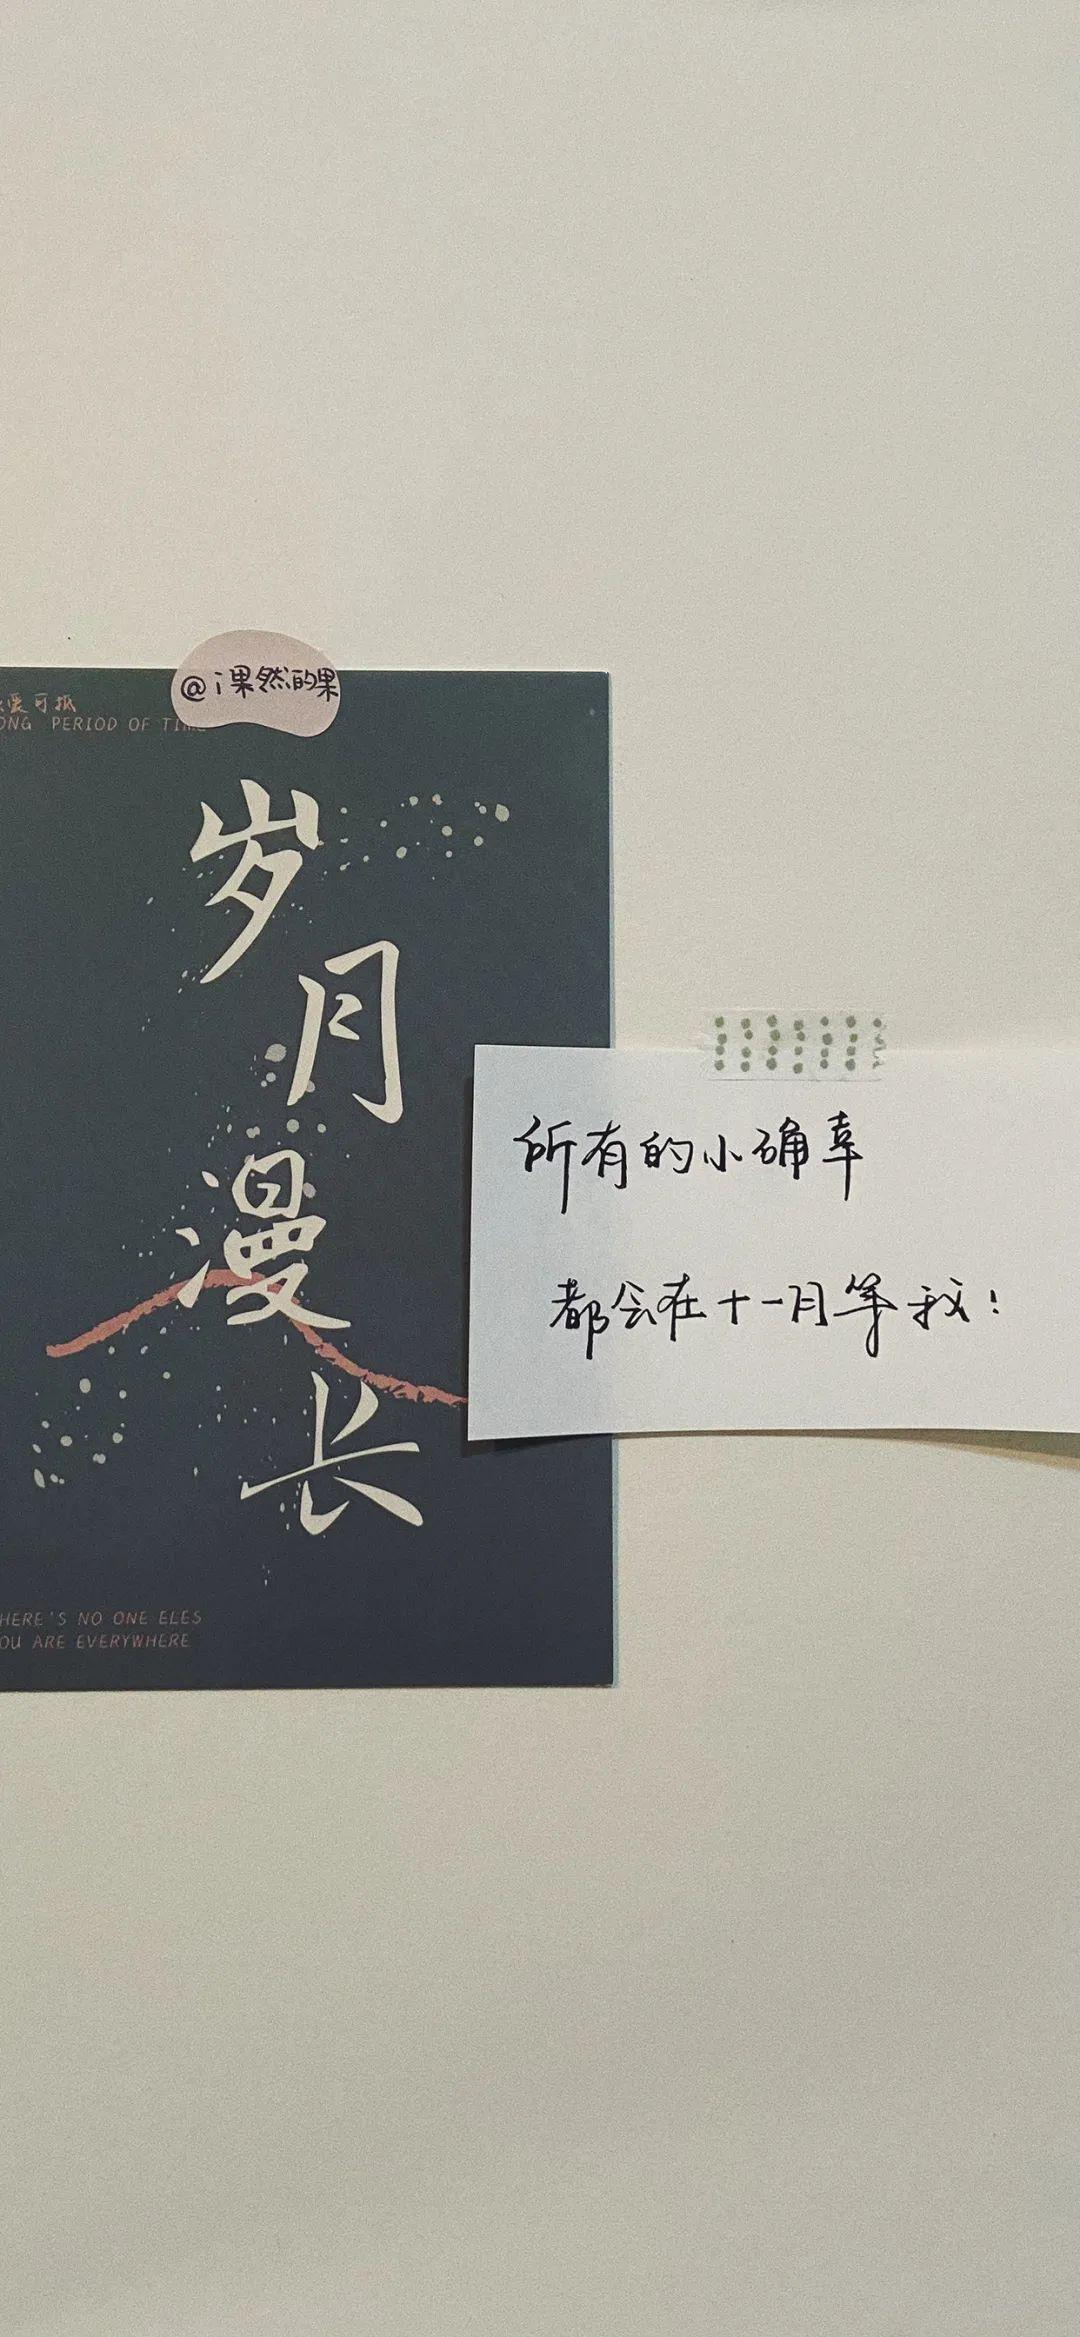 @i果然的果
爱可抵
ONG PERIOD OF TIME
岁
月
漫
长
所有的小确幸
都会在十一月等我！
HERE'S NO ONE ELES
OU ARE EVERYWHERE